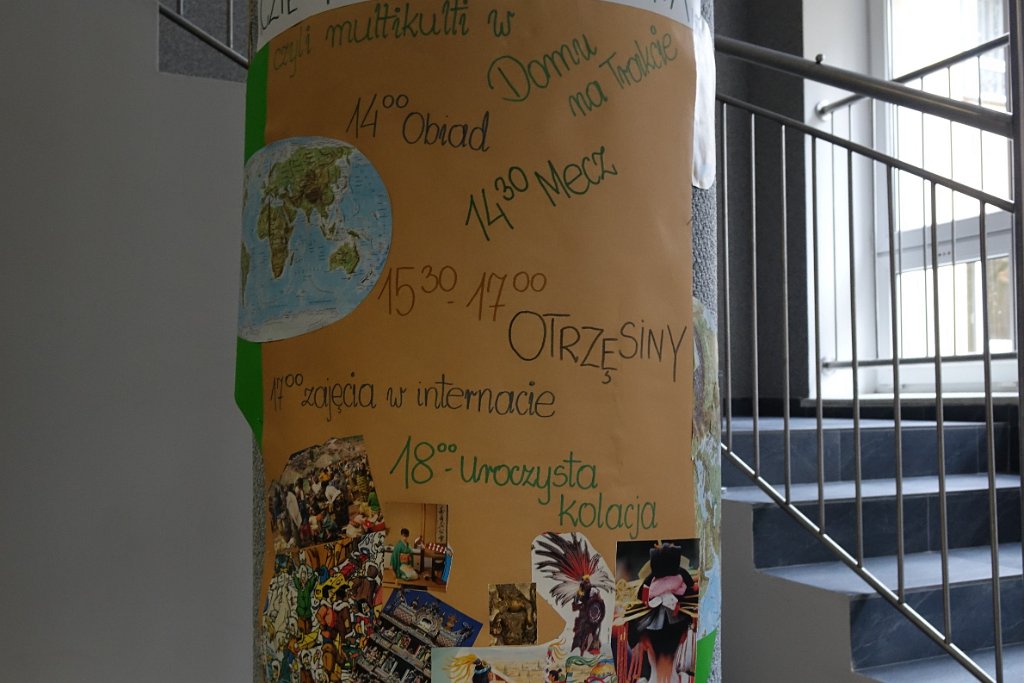 czyli multikulti w
Domu
na Trakcie
14⁰⁰ Obiad
14³⁰ Mecz
15³⁰-17⁰⁰
OTRZĘSINY
17⁰⁰ zajęcia w internacie
18⁰⁰- Uroczysta
kolacja